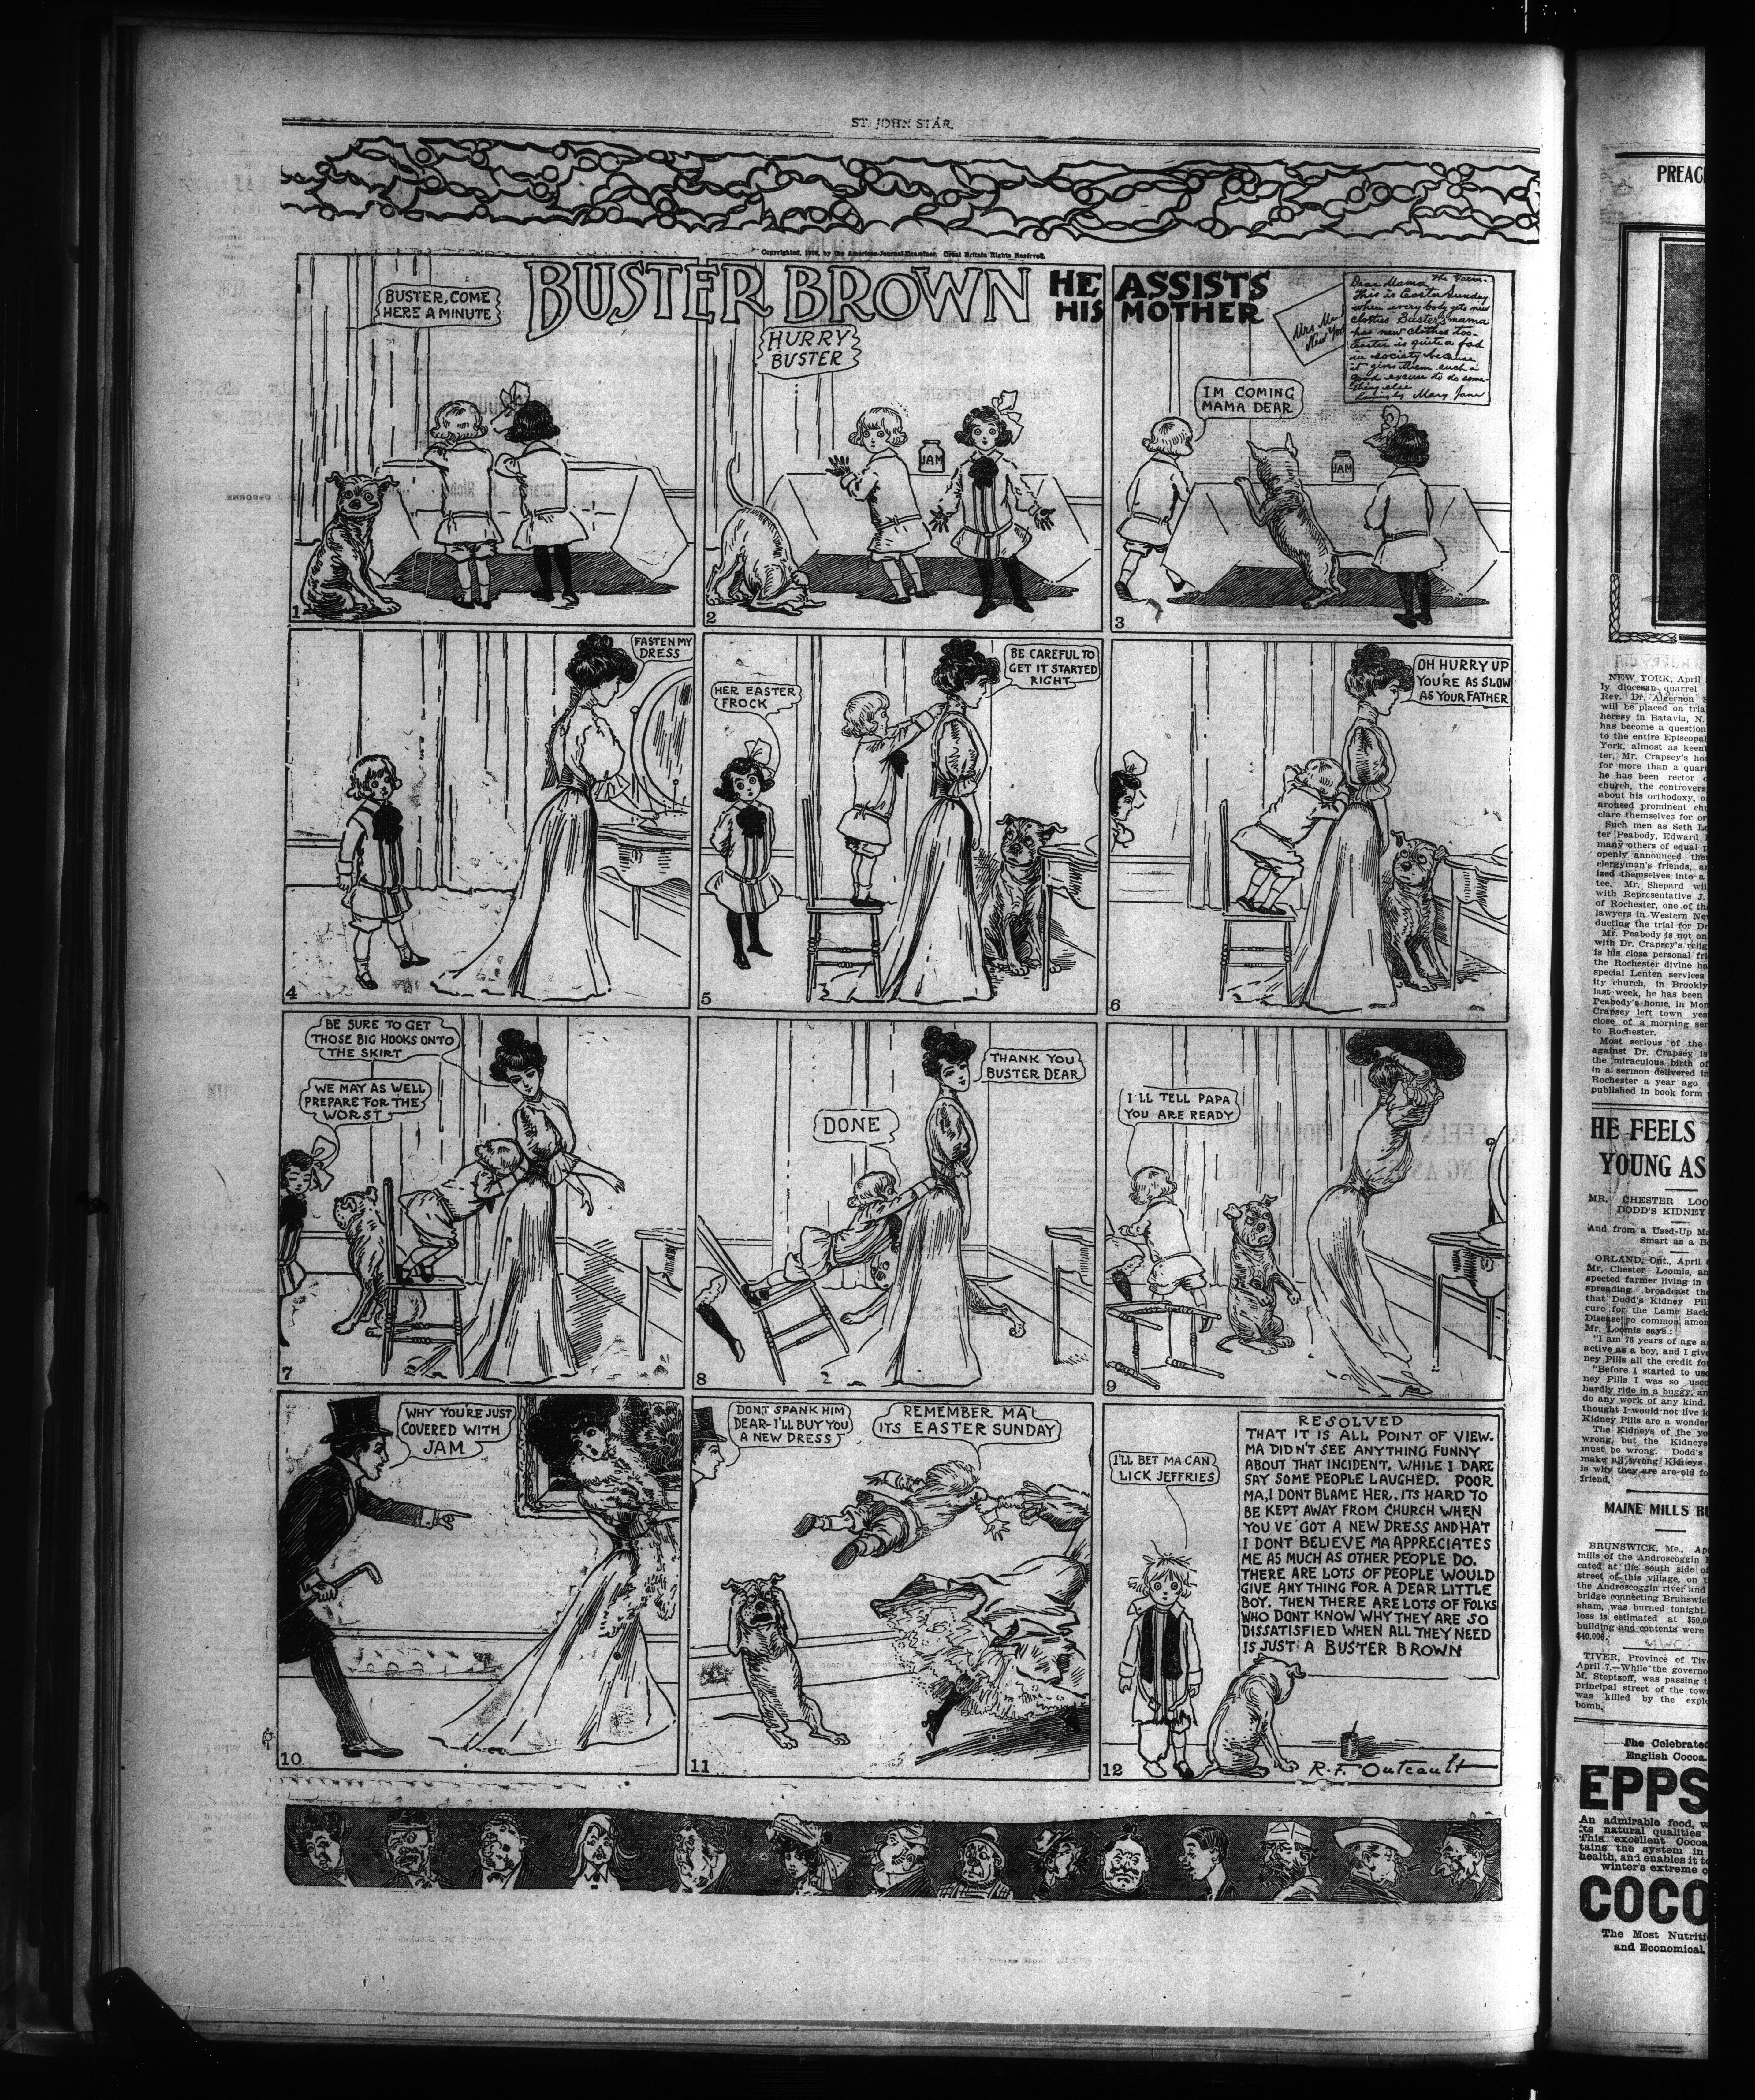 ST. JOHN STAR.
Copyrighted, 1906, by the American-Journal-Examiner. Great Britain Rights Reserved.
BUSTER BROWN
HE ASSISTS
HIS MOTHER
BUSTER, COME
HERE A MINUTE
1
HURRY
BUSTER
JAM
2
The Farm.
Dear Mama
This is Easter Sunday
when everybody gets new
clothes Buster's mama
has new clothes too.
Easter is quite a fad
in society because
it gives them such a
good excuse to do some-
thing else
Lovingly Mary Jane
Mrs
New York
IM COMING
MAMA DEAR
JAM
3
FASTEN MY
DRESS
4
HER EASTER
FROCK
BE CAREFUL TO
GET IT STARTED
RIGHT
5
OH HURRY UP
YOU'RE AS SLOW
AS YOUR FATHER
6
BE SURE TO GET
THOSE BIG HOOKS ONTO
THE SKIRT
WE MAY AS WELL
PREPARE FOR THE
WORST
7
DONE
THANK YOU
BUSTER DEAR
8
I'LL TELL PAPA
YOU ARE READY
9
WHY YOU'RE JUST
COVERED WITH
JAM
10
DONT SPANK HIM
DEAR-I'LL BUY YOU
A NEW DRESS
REMEMBER MA
ITS EASTER SUNDAY
11
I'LL BET MA CAN
LICK JEFFRIES
RESOLVED
THAT IT IS ALL POINT OF VIEW.
MA DIDN'T SEE ANYTHING FUNNY
ABOUT THAT INCIDENT, WHILE I DARE
SAY SOME PEOPLE LAUGHED. POOR
MA, I DONT BLAME HER. ITS HARD TO
BE KEPT AWAY FROM CHURCH WHEN
YOU'VE GOT A NEW DRESS AND HAT
I DONT BELIEVE MA APPRECIATES
ME AS MUCH AS OTHER PEOPLE DO.
THERE ARE LOTS OF PEOPLE WOULD
GIVE ANY THING FOR A DEAR LITTLE
BOY. THEN THERE ARE LOTS OF FOLKS
WHO DONT KNOW WHY THEY ARE SO
DISSATISFIED WHEN ALL THEY NEED
IS JUST A BUSTER BROWN
12
R.F. Outcault
PREAC
NEW YORK, April
ly diocesan quarrel
Rev. Dr. Algernon S
will be placed on tria
heresy in Batavia, N.
has become a question
to the entire Episcopal
York, almost as keen
ter, Mr. Crapsey's ho
for more than a quar
he has been rector
church, the controvers
about his orthodoxy,
aroused prominent
clare themselves for or
Such men as Seth Lo
ter Peabody, Edward
many others of equal p
openly announced the
clergyman's friends, an
ized themselves into a
tee. Mr. Shepard wil
with Representative J.
of Rochester, one of th
lawyers in Western Ne
ducting the trial for Dr
Mr. Peabody is not on
with Dr. Crapsey's relig
is his close personal fri
the Rochester divine ha
special Lenten services
ity church, in Brookly
last week, he has been
Peabody's home, in Mon
Crapsey left town yes
close of a morning ser
to Rochester.
Most serious of the
against Dr. Crapsey is
the miraculous birth of
in a sermon delivered in
Rochester a year ago
published in book form
HE FEELS
YOUNG AS
MR. CHESTER LOO
DODD'S KIDNEY
And from a Used-Up M
Smart as a B
ORLAND, Ont., April
Mr. Chester Loomis, an
spected farmer living in
spreading broadcast the
that Dodd's Kidney Pil
cure for the Lame Back
Disease so common amon
Mr. Loomis says:
"I am 76 years of age a
active as a boy, and I give
ney Pills all the credit fo
"Before I started to use
ney Pills I was so used
hardly ride in a buggy, an
do any work of any kind.
thought I would not live l
Kidney Pills are a wonder
The Kidneys of the yo
wrong, but the Kidneys
must be wrong. Dodd's
make all wrong Kidneys
is why they are are old fo
friend.
MAINE MILLS BU
BRUNSWICK, Me., Ap
mills of the Androscoggin
cated at the south side of
street of this village, on
the Androscoggin river and
bridge connecting Brunswic
sham, was burned tonight.
loss is estimated at $50,0
building and contents were
$40,000.
TIVER, Province of Tive
April 7.—While the governo
M. Steptzoff, was passing t
principal street of the town
was killed by the explo
bomb.
The Celebrated
English Cocoa.
EPPS
An admirable food, w
its natural qualities
This excellent Cocoa
tains the system in
health, and enables it to
winter's extreme c
COCO
The Most Nutriti
and Economical.